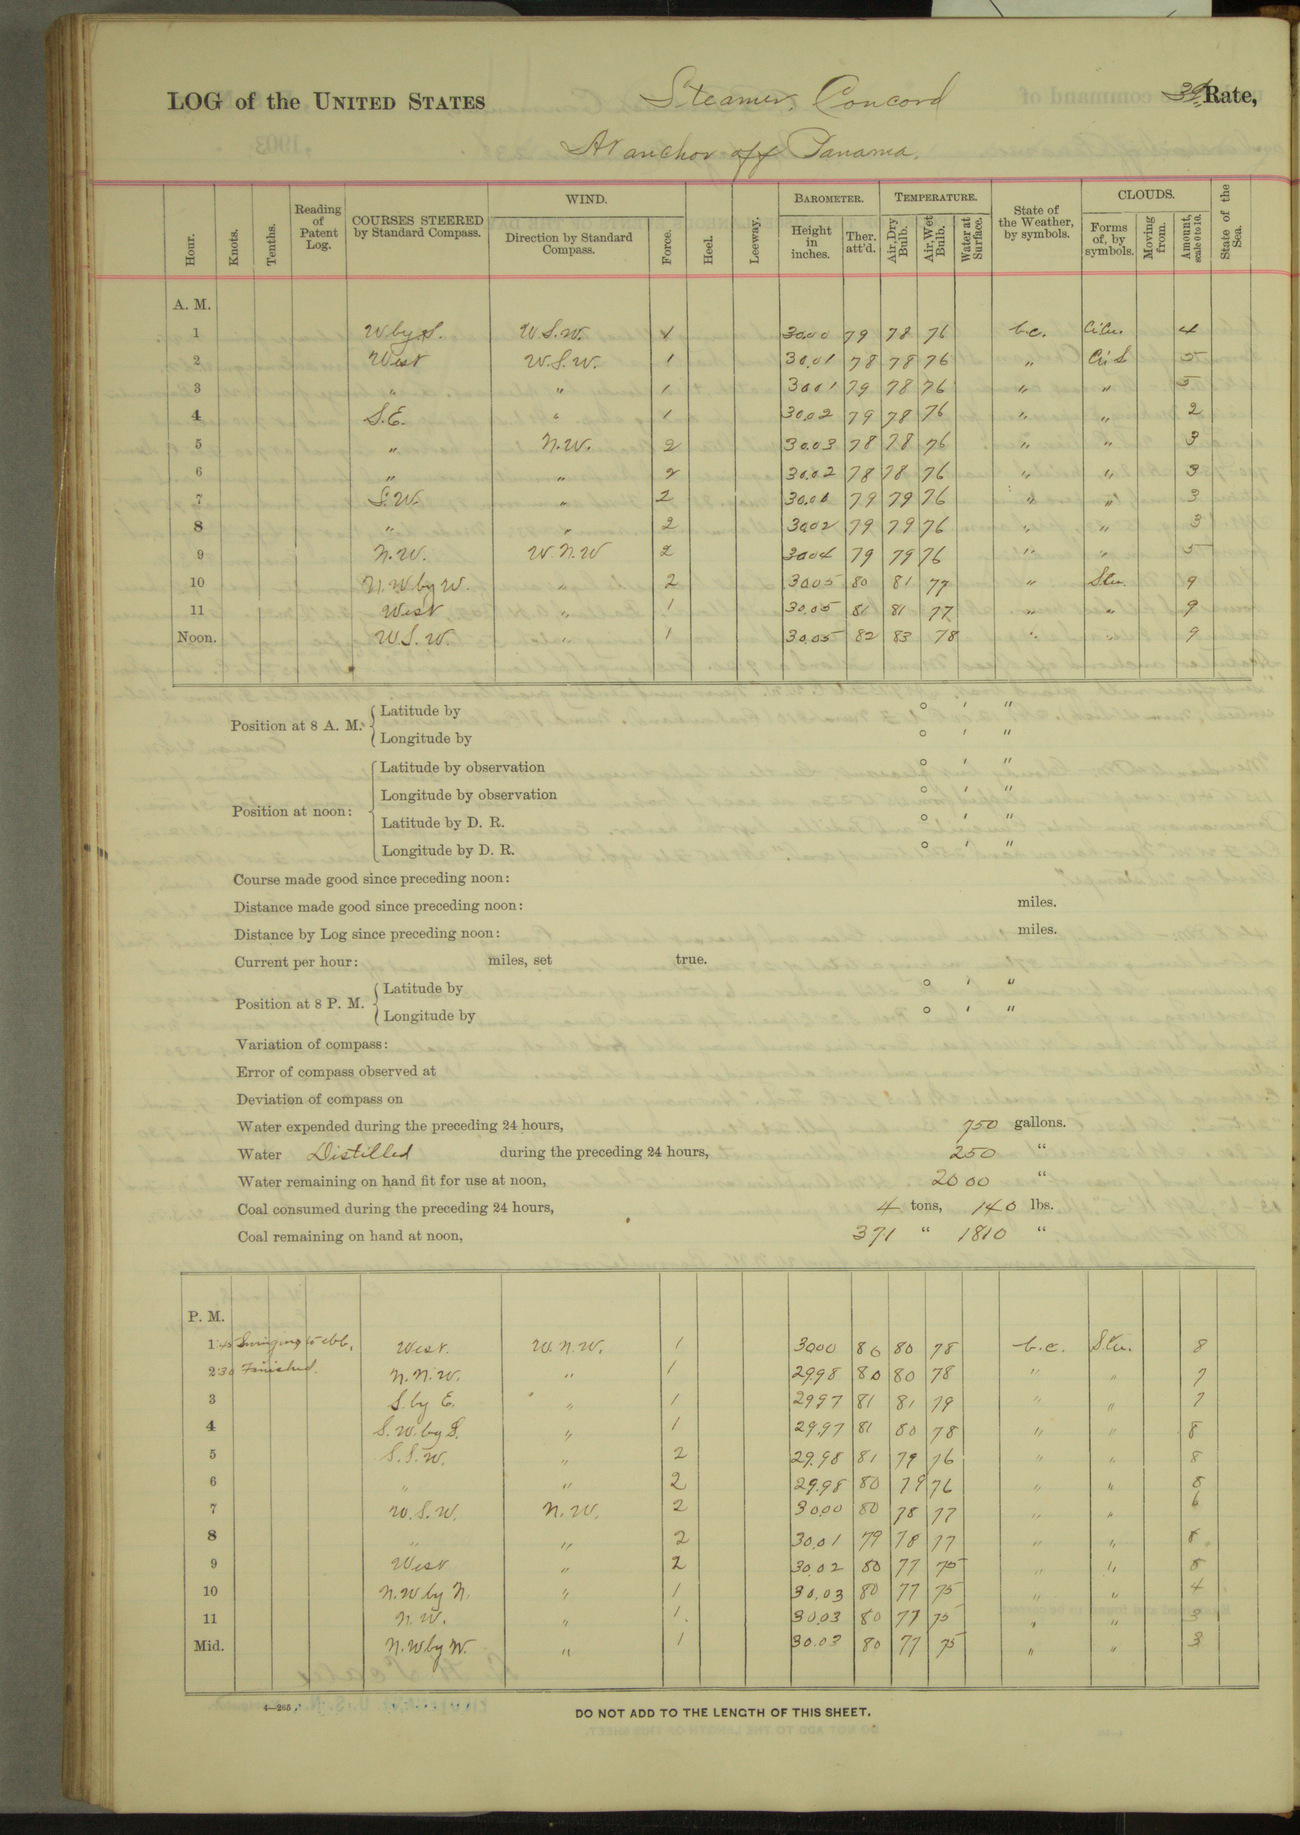 LOG of the UNITED STATES Steamer, Concord 3d Rate,
At anchor off Panama.
Hour. Knots. Tenths. Reading of Patent Log. COURSES STEERED by Standard Compass. WIND. Direction by Standard Compass. Force. Heel. Leeway. BAROMETER. Height in inches. Ther. att'd. TEMPERATURE. Air, Dry Bulb. Air, Wet Bulb. Water at Surface. State of the Weather, by symbols. CLOUDS. Forms of, by symbols. Moving from. Amount, scale 0 to 10. State of the Sea.
A. M.
1 W by S. W.S.W. 1 30.00 79 78 76 b.c. Ci.Cu. 4
2 West W.S.W. 1 30.01 78 78 76 " Ci.S 5
3 " " 1 30.01 79 78 76 " " 5
4 S.E. " 1 30.02 79 78 76 " " 2
5 " N.W. 2 30.03 78 78 76 " " 3
6 " " 2 30.02 78 78 76 " " 3
7 S.W. " 2 30.01 79 79 76 " " 3
8 " " 2 30.02 79 79 76 " " 3
9 N.W. W.N.W 2 30.04 79 79 76 " " 5
10 N.W by W. " 2 30.05 80 81 77 " S.Cu. 9
11 West " 1 30.05 81 81 77 " " 9
Noon. W.S.W. " 1 30.05 82 83 78 " " 9
Position at 8 A. M. { Latitude by ° ' "
Longitude by ° ' "
Position at noon: { Latitude by observation ° ' "
Longitude by observation ° ' "
Latitude by D. R. ° ' "
Longitude by D. R. ° ' "
Course made good since preceding noon:
Distance made good since preceding noon: miles.
Distance by Log since preceding noon: miles.
Current per hour: miles, set true.
Position at 8 P. M. { Latitude by ° ' "
Longitude by ° ' "
Variation of compass:
Error of compass observed at
Deviation of compass on
Water expended during the preceding 24 hours, 750 gallons.
Water Distilled during the preceding 24 hours, 250 "
Water remaining on hand fit for use at noon, 2000 "
Coal consumed during the preceding 24 hours, 4 tons, 140 lbs.
Coal remaining on hand at noon, 371 " 1810 "
P. M.
1:45 Swinging to ebb. West. W.N.W. 1 30.00 80 80 78 b.c. S.Cu. 8
2:30 Finished. N.N.W. " 1 29.98 80 80 78 " " 7
3 S. by E. " 1 29.97 81 81 79 " " 7
4 S.W. by S. " 1 29.97 81 80 78 " " 8
5 S.S.W. " 2 29.98 81 79 76 " " 8
6 " " 2 29.98 80 79 76 " " 8
7 W.S.W. N.W. 2 30.00 80 78 77 " " 6
8 " " 2 30.01 79 78 77 " " 8
9 West " 2 30.02 80 77 75 " " 8
10 N.W by N. " 1 30.03 80 77 75 " " 4
11 N.W. " 1. 30.03 80 77 75 " " 3
Mid. N.W by W. " 1 30.03 80 77 75 " " 3
4—265
DO NOT ADD TO THE LENGTH OF THIS SHEET.